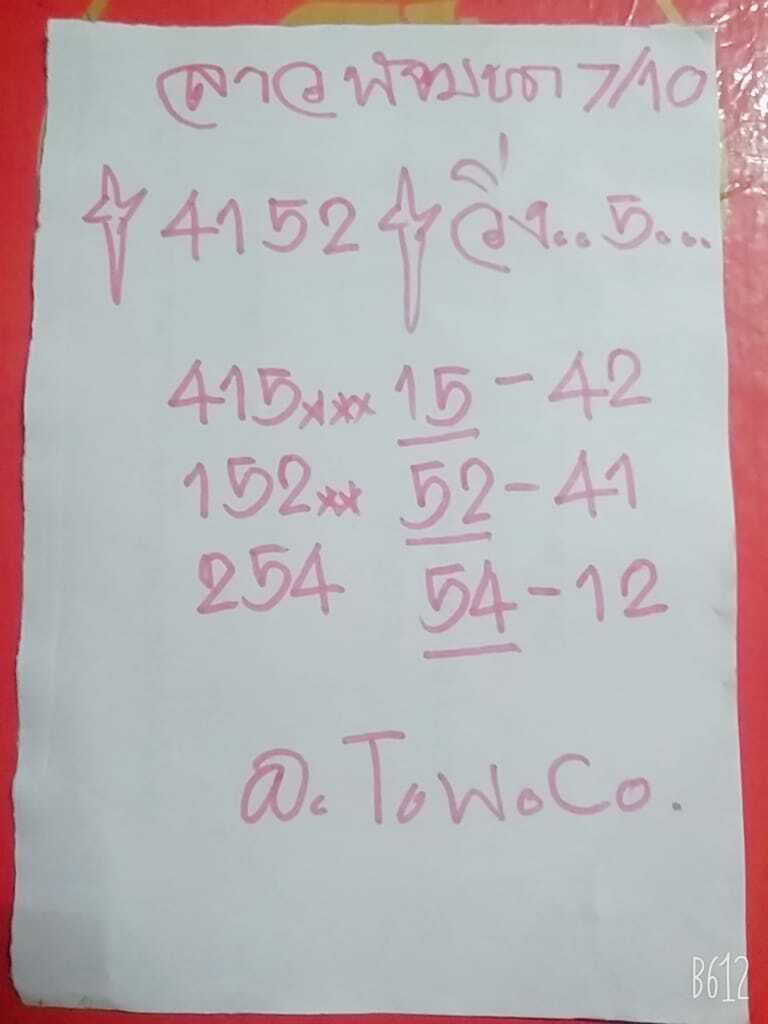 ลาว พัฒนา 7/10
4152 วิ่ง..5...
415××× 15 - 42
152×× 52 - 41
254 54 - 12
@. T.W.Co.
B612